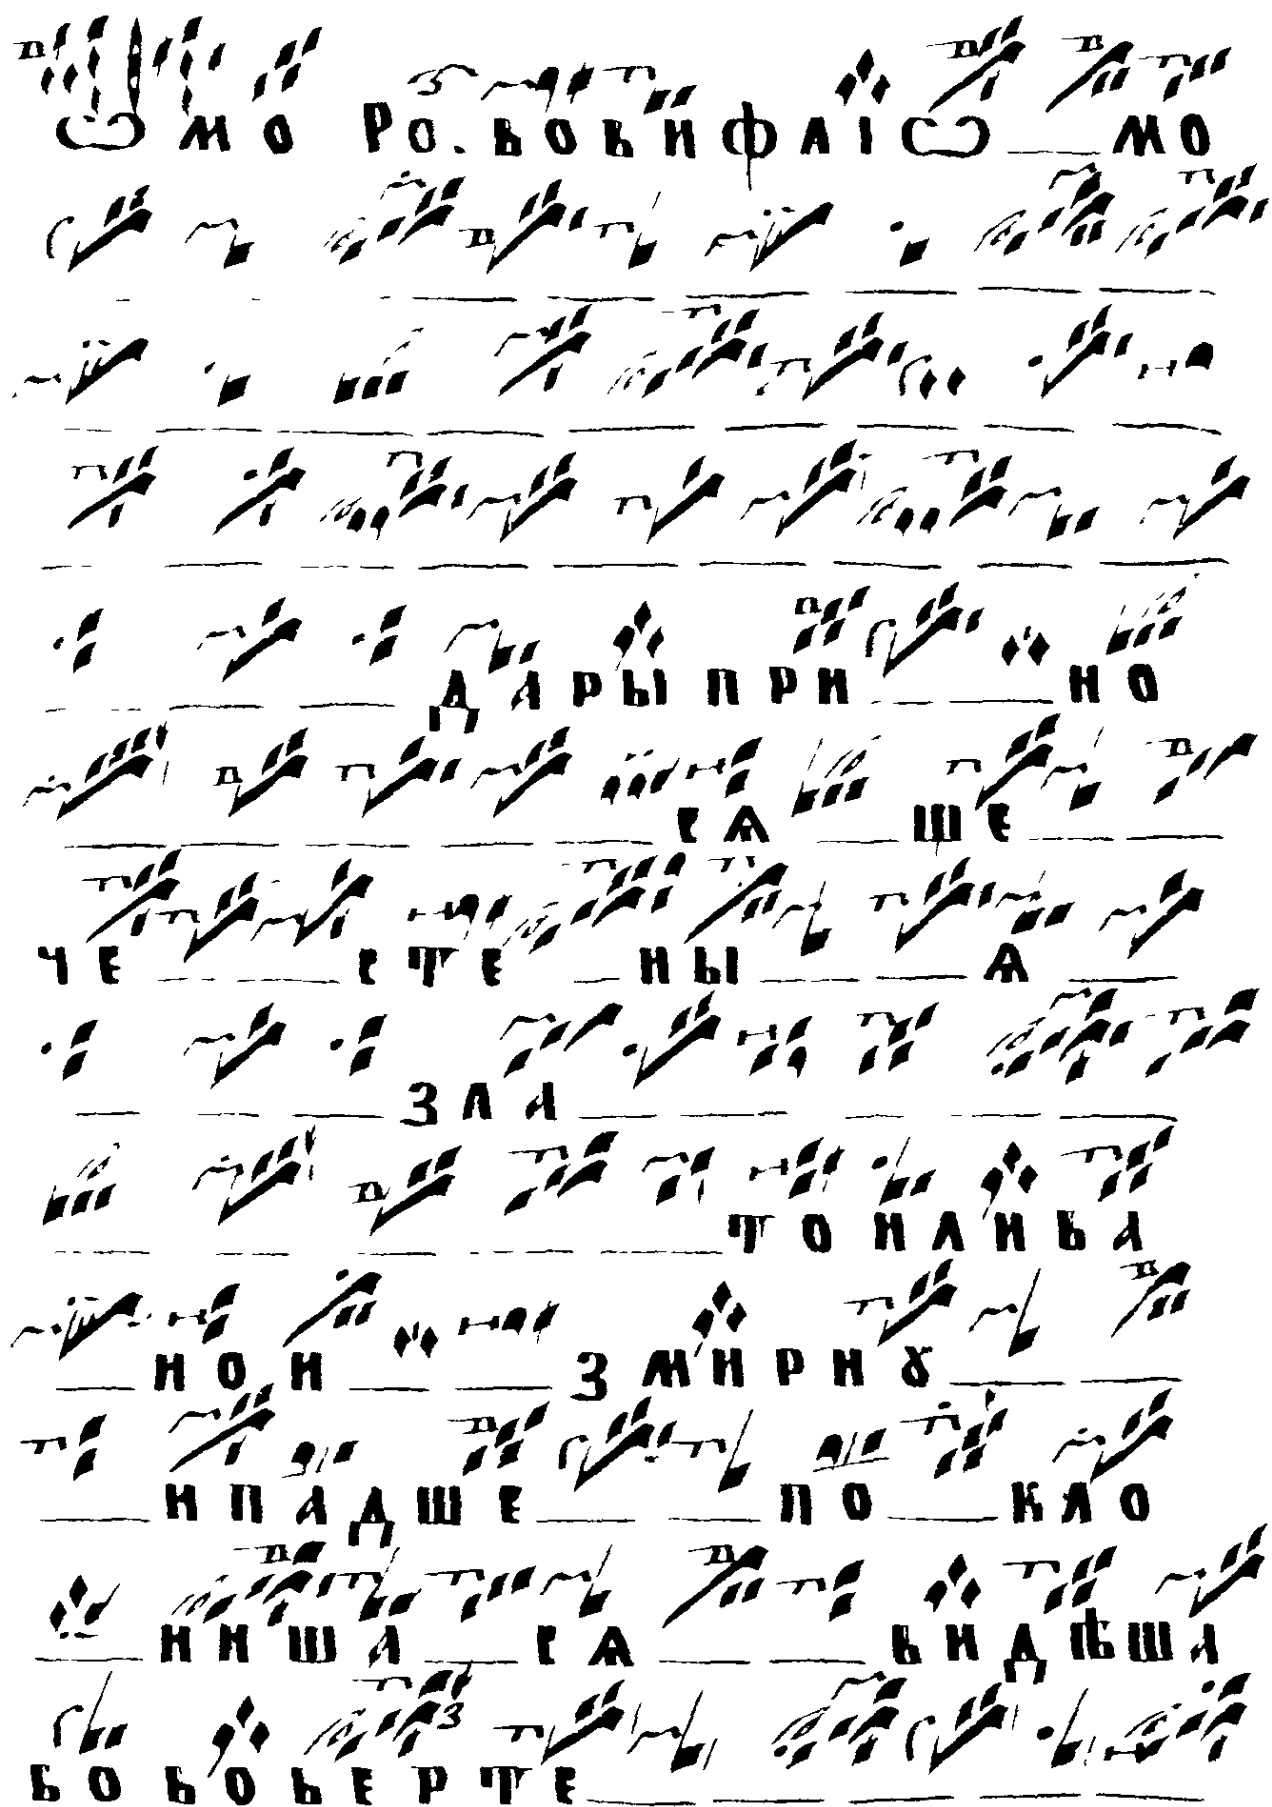 Ѡ МО РО. ВОВИФЛІѠ МО
ДАРЫПРИ НО
СѦ ШЕ
ЧЕ СТЕ НЫ Ѧ
ЗЛА
ТОИЛИВА
НОИ ЗМИРНꙊ
ИПАДШЕ ПО КЛО
НИША СѦ ВИДѢША
БОВОВЕРТЕ